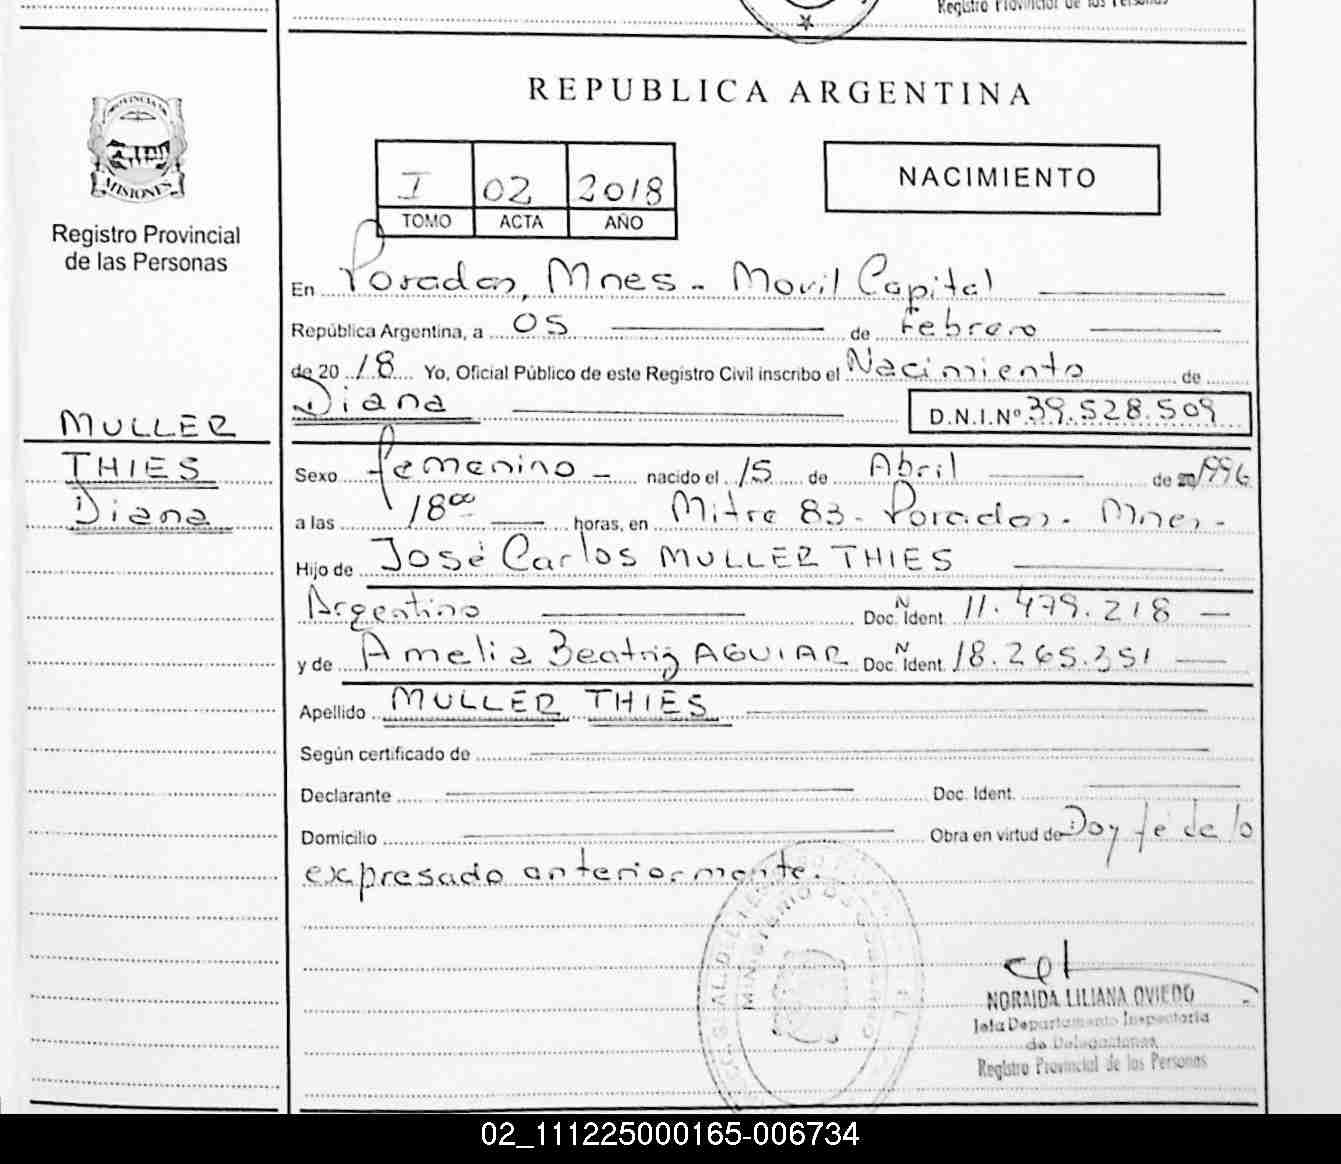 Registro Provincial de las Personas
PROVINCIA DE
MISIONES
Registro Provincial
de las Personas
MULLER
THIES
Diana
REPUBLICA ARGENTINA
I 02 2018
TOMO ACTA AÑO
NACIMIENTO
En Posadas, Mnes - Movil Capital
República Argentina, a 05 de Febrero
de 2018 Yo, Oficial Público de este Registro Civil inscribo el Nacimiento de
Diana D.N.I.Nº 39.528.509
Sexo femenino - nacido el 15 de Abril de 1996
a las 18 00 horas, en Mitre 83 - Posadas - Mnes -
Hijo de José Carlos MULLER THIES
Argentino Doc. N Ident. 11.479.218
y de Amelia Beatriz AGUIAR Doc. N Ident. 18.265.351
Apellido MULLER THIES
Según certificado de
Declarante Doc. Ident.
Domicilio Obra en virtud de Doy fé de lo
expresado anteriormente.
MINISTERIO DE
NORAIDA LILIANA OVIEDO
Jefa Departamento Inspectoria
de Delegaciones
Registro Provincial de las Personas
02_111225000165-006734